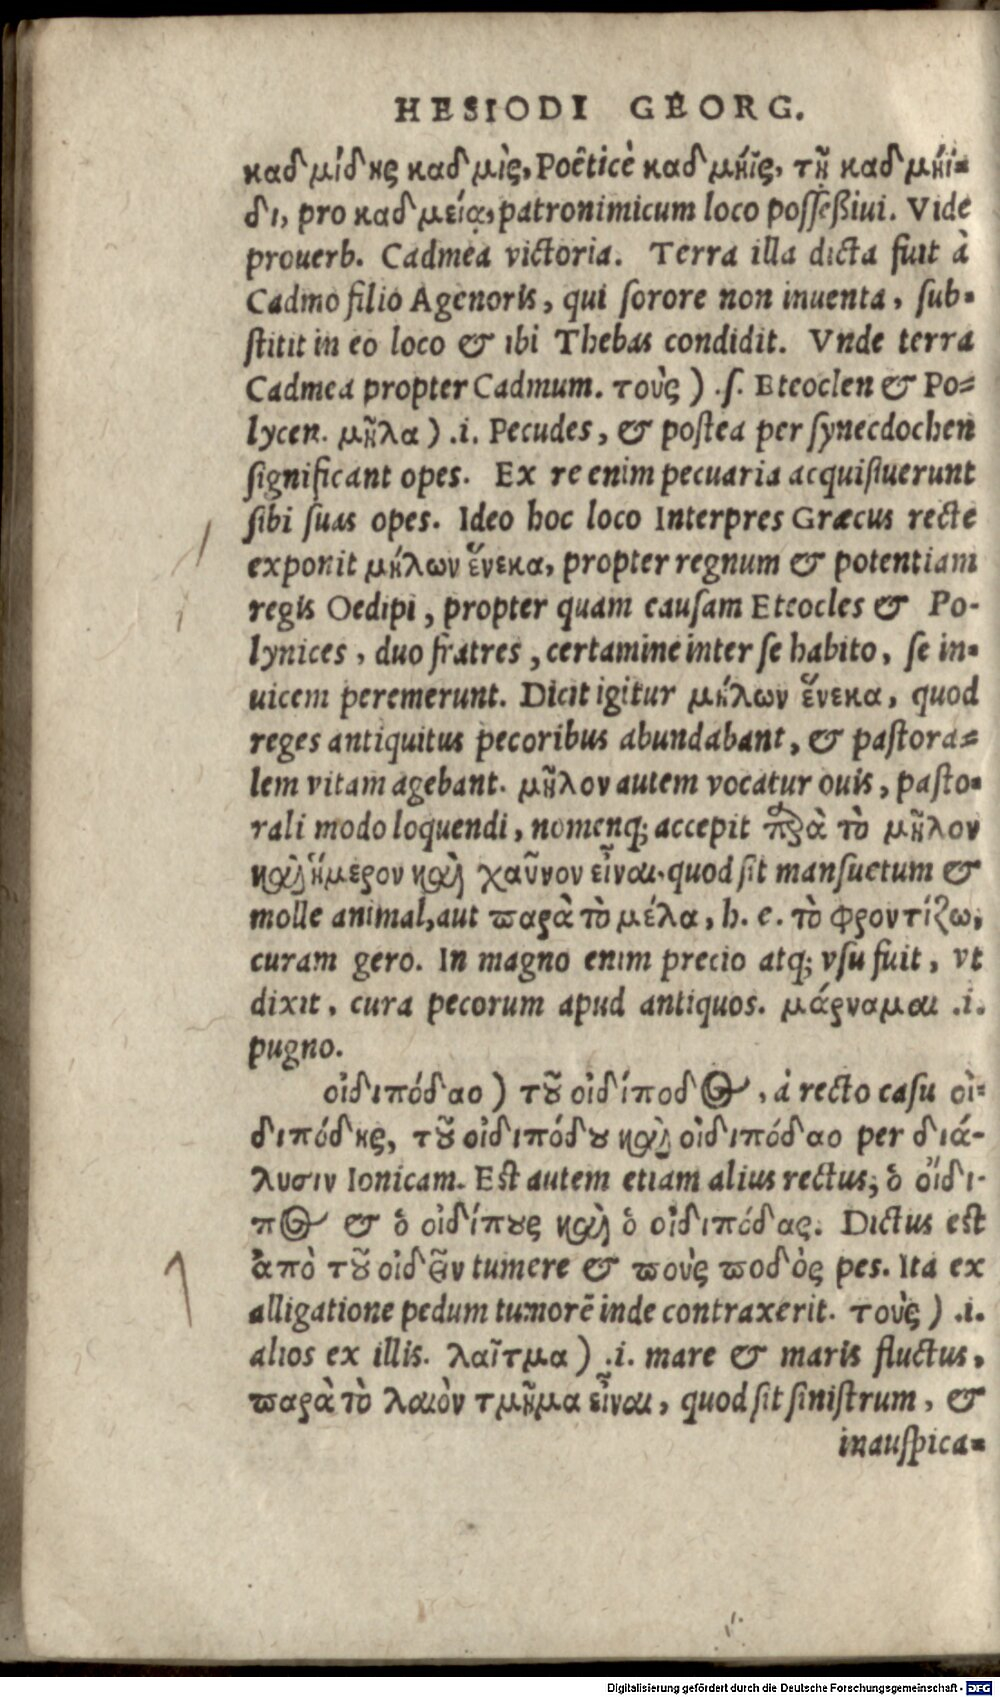 HESIODI GEORG.
καδμίδης καδμὶς, Poêticè καδμηῒς, τῇ καδμηΐ-
δι, pro καδμείᾳ, patronimicum loco possessiui. Vide
prouerb. Cadmea victoria. Terra illa dicta fuit à
Cadmo filio Agenoris, qui sorore non inuenta, sub-
stitit in eo loco & ibi Thebas condidit. Vnde terra
Cadmea propter Cadmum. τοὺς ) .s. Eteoclen & Po-
lycen. μῆλα ) .i. Pecudes, & postea per synecdochen
significant opes. Ex re enim pecuaria acquisiuerunt
sibi suas opes. Ideo hoc loco Interpres Græcus recte
exponit μήλων ἕνεκα, propter regnum & potentiam
regis Oedipi, propter quam causam Eteocles & Po-
lynices, duo fratres, certamine inter se habito, se in-
uicem peremerunt. Dicit igitur μήλων ἕνεκα, quod
reges antiquitus pecoribus abundabant, & pastora-
lem vitam agebant. μῆλον autem vocatur ouis, pasto-
rali modo loquendi, nomenq; accepit παρὰ τὸ μῆλον
καὶ ἥμερον καὶ χαῦνον εἶναι. quod sit mansuetum &
molle animal, aut παρὰ τὸ μέλα, h. e. τὸ φροντίζω,
curam gero. In magno enim precio atq; vsu fuit, vt
dixit, cura pecorum apud antiquos. μάρναμαι .i.
pugno.
οἰδιπόδαο ) τοῦ οἰδίποδος, à recto casu οἰ-
διπόδης, τοῦ οἰδιπόδου καὶ οἰδιπόδαο per διά-
λυσιν Ionicam. Est autem etiam alius rectus, ὁ οἴδι-
πος & ὁ οἰδίπους καὶ ὁ οἰδιπόδας. Dictus est
ἀπὸ τοῦ οἰδᾶν tumere & ποὺς ποδὸς pes. Ita ex
alligatione pedum tumorẽ inde contraxerit. τοὺς ) .i.
alios ex illis. λαῖτμα ) .i. mare & maris fluctus,
παρὰ τὸ λαιὸν τμῆμα εἶναι, quod sit sinistrum, &
inauspica-
Digitalisierung gefördert durch die Deutsche Forschungsgemeinschaft - DFG